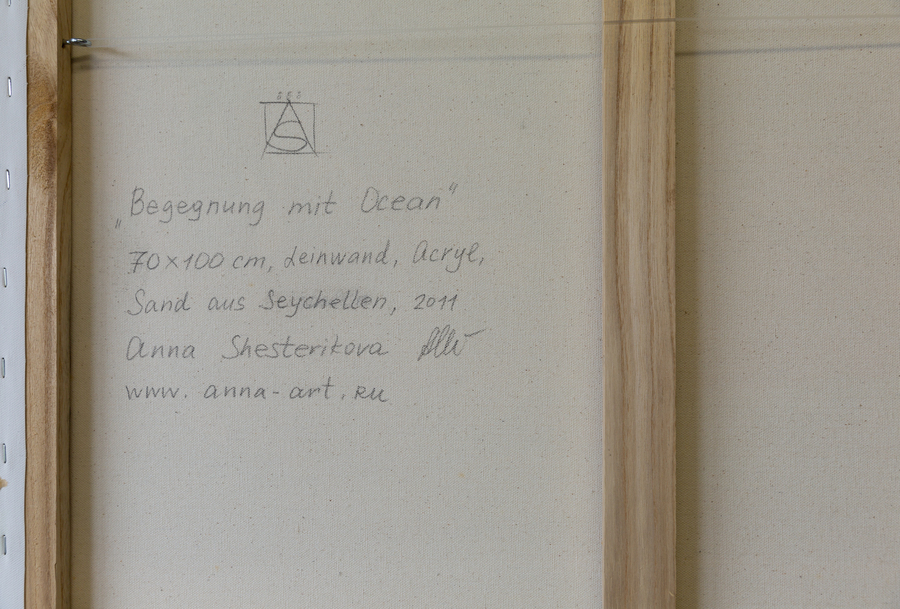 „Begegnung mit Ocean"
70x100 cm, Leinwand, Acryl,
Sand aus Seychellen, 2011
Anna Shesterikova
www.anna-art.ru